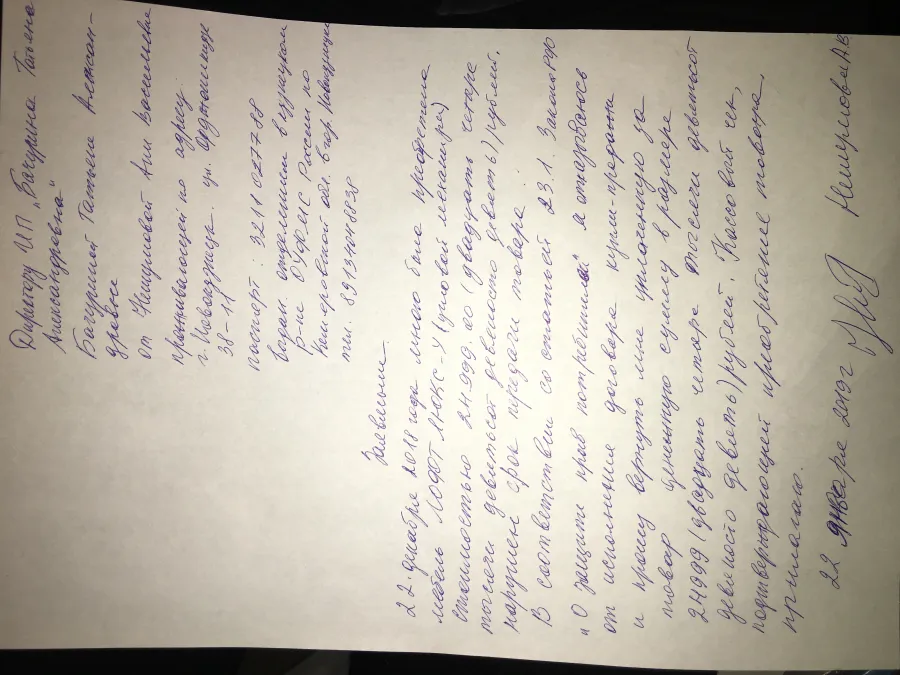 Директору ИП „Бакурина Татьяна
Александровна"
Бакуриной Татьяне Алексан-
дровне
от Немцуловой Анны
проживающей по адресу:
г. Новокузнецк. ул. Орджоникидзе
38-11
паспорт: 3211 027788
выдан. отделением в кузнецком
р-не ОУФМС России по
Кемеровской обл. в гор. Новокузнецке
тел. 89134048838
Заявление.
22. декабря 2018 года мною была приобретена
мебель ЛОФТ ЛЮКС-У (угловой механизм)
стоимостью 24999.00 (двадцать четыре
тысячи девятьсот девяносто девять) рублей.
нарушен срок передачи товара.
В соответствии со статьей 23.1. Закона РФ
„О защите прав потребителей я отказываюсь
от исполнения договора купли-продажи
и прошу вернуть мне уплаченную за
товар денежную сумму в размере
24999 (двадцать четыре тысячи девятьсот
девяносто девять) рублей. Кассовый чек,
подтверждающий приобретение товара,
прилагаю.
22 января 2019г